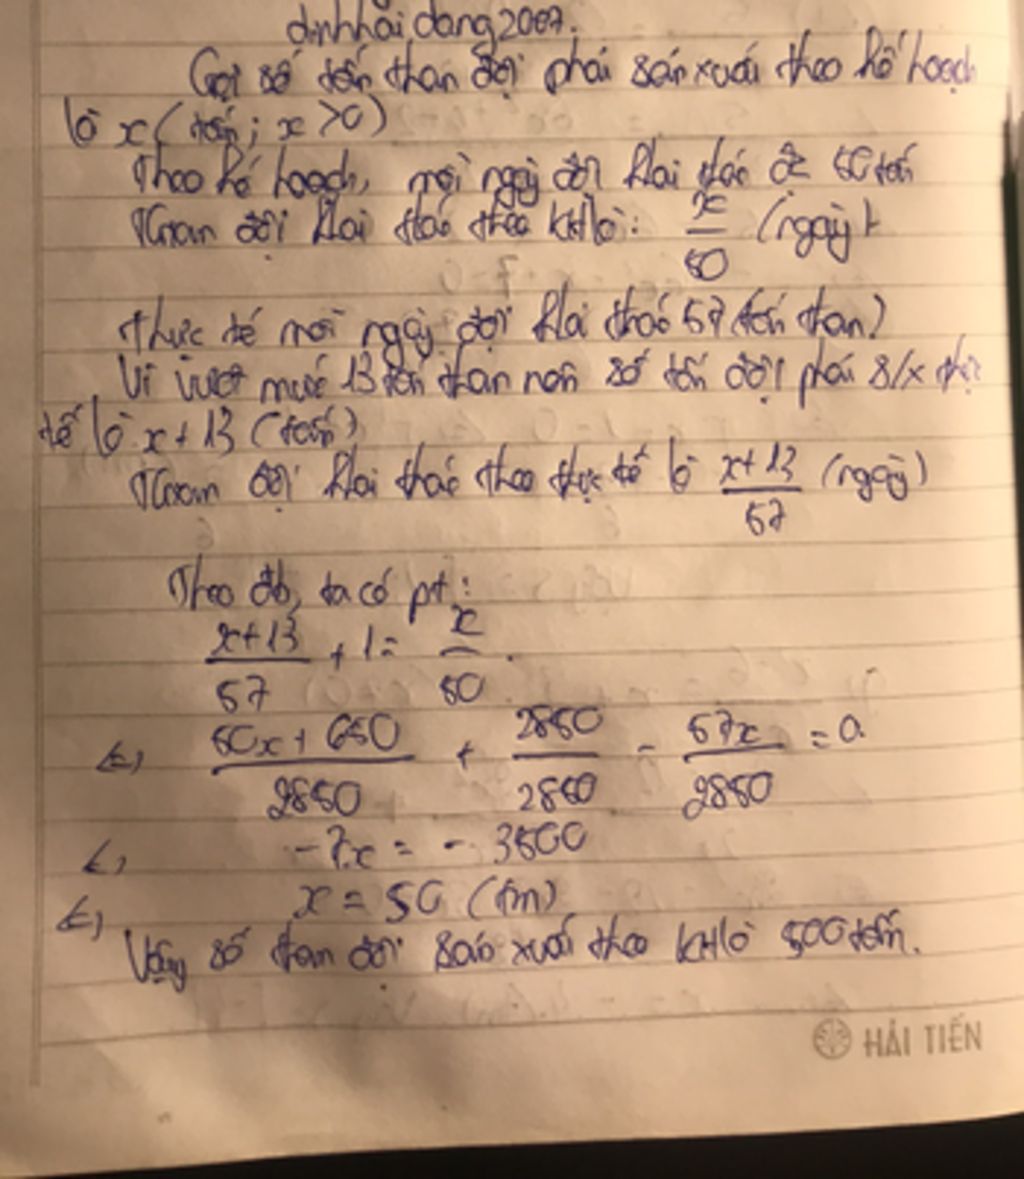 dinhhaidang2007.
Gọi số tấn than đội phải sản xuất theo kế hoạch
là x (tấn; x > 0)
Theo kế hoạch, mỗi ngày đội khai thác đc 50 tấn
Tgian đội khai thác theo KH là: x/50 (ngày)
Thực tế mỗi ngày đội khai thác 57 tấn than)
Vì vượt mức 13 tấn than nên số tấn đội phải s/x thực
tế là x + 13 (tấn)
Tgian đội khai thác theo thực tế là x+13/57 (ngày)
Theo đb, ta có pt:
x+13/57 + 1 = x/50.
<=> 50x + 650/2850 + 2850/2850 - 57x/2850 = 0
<=> -7x = - 3500
<=> x = 50 (tm)
Vậy số than đội sản xuất theo KH là 500 tấn.
HẢI TIẾN